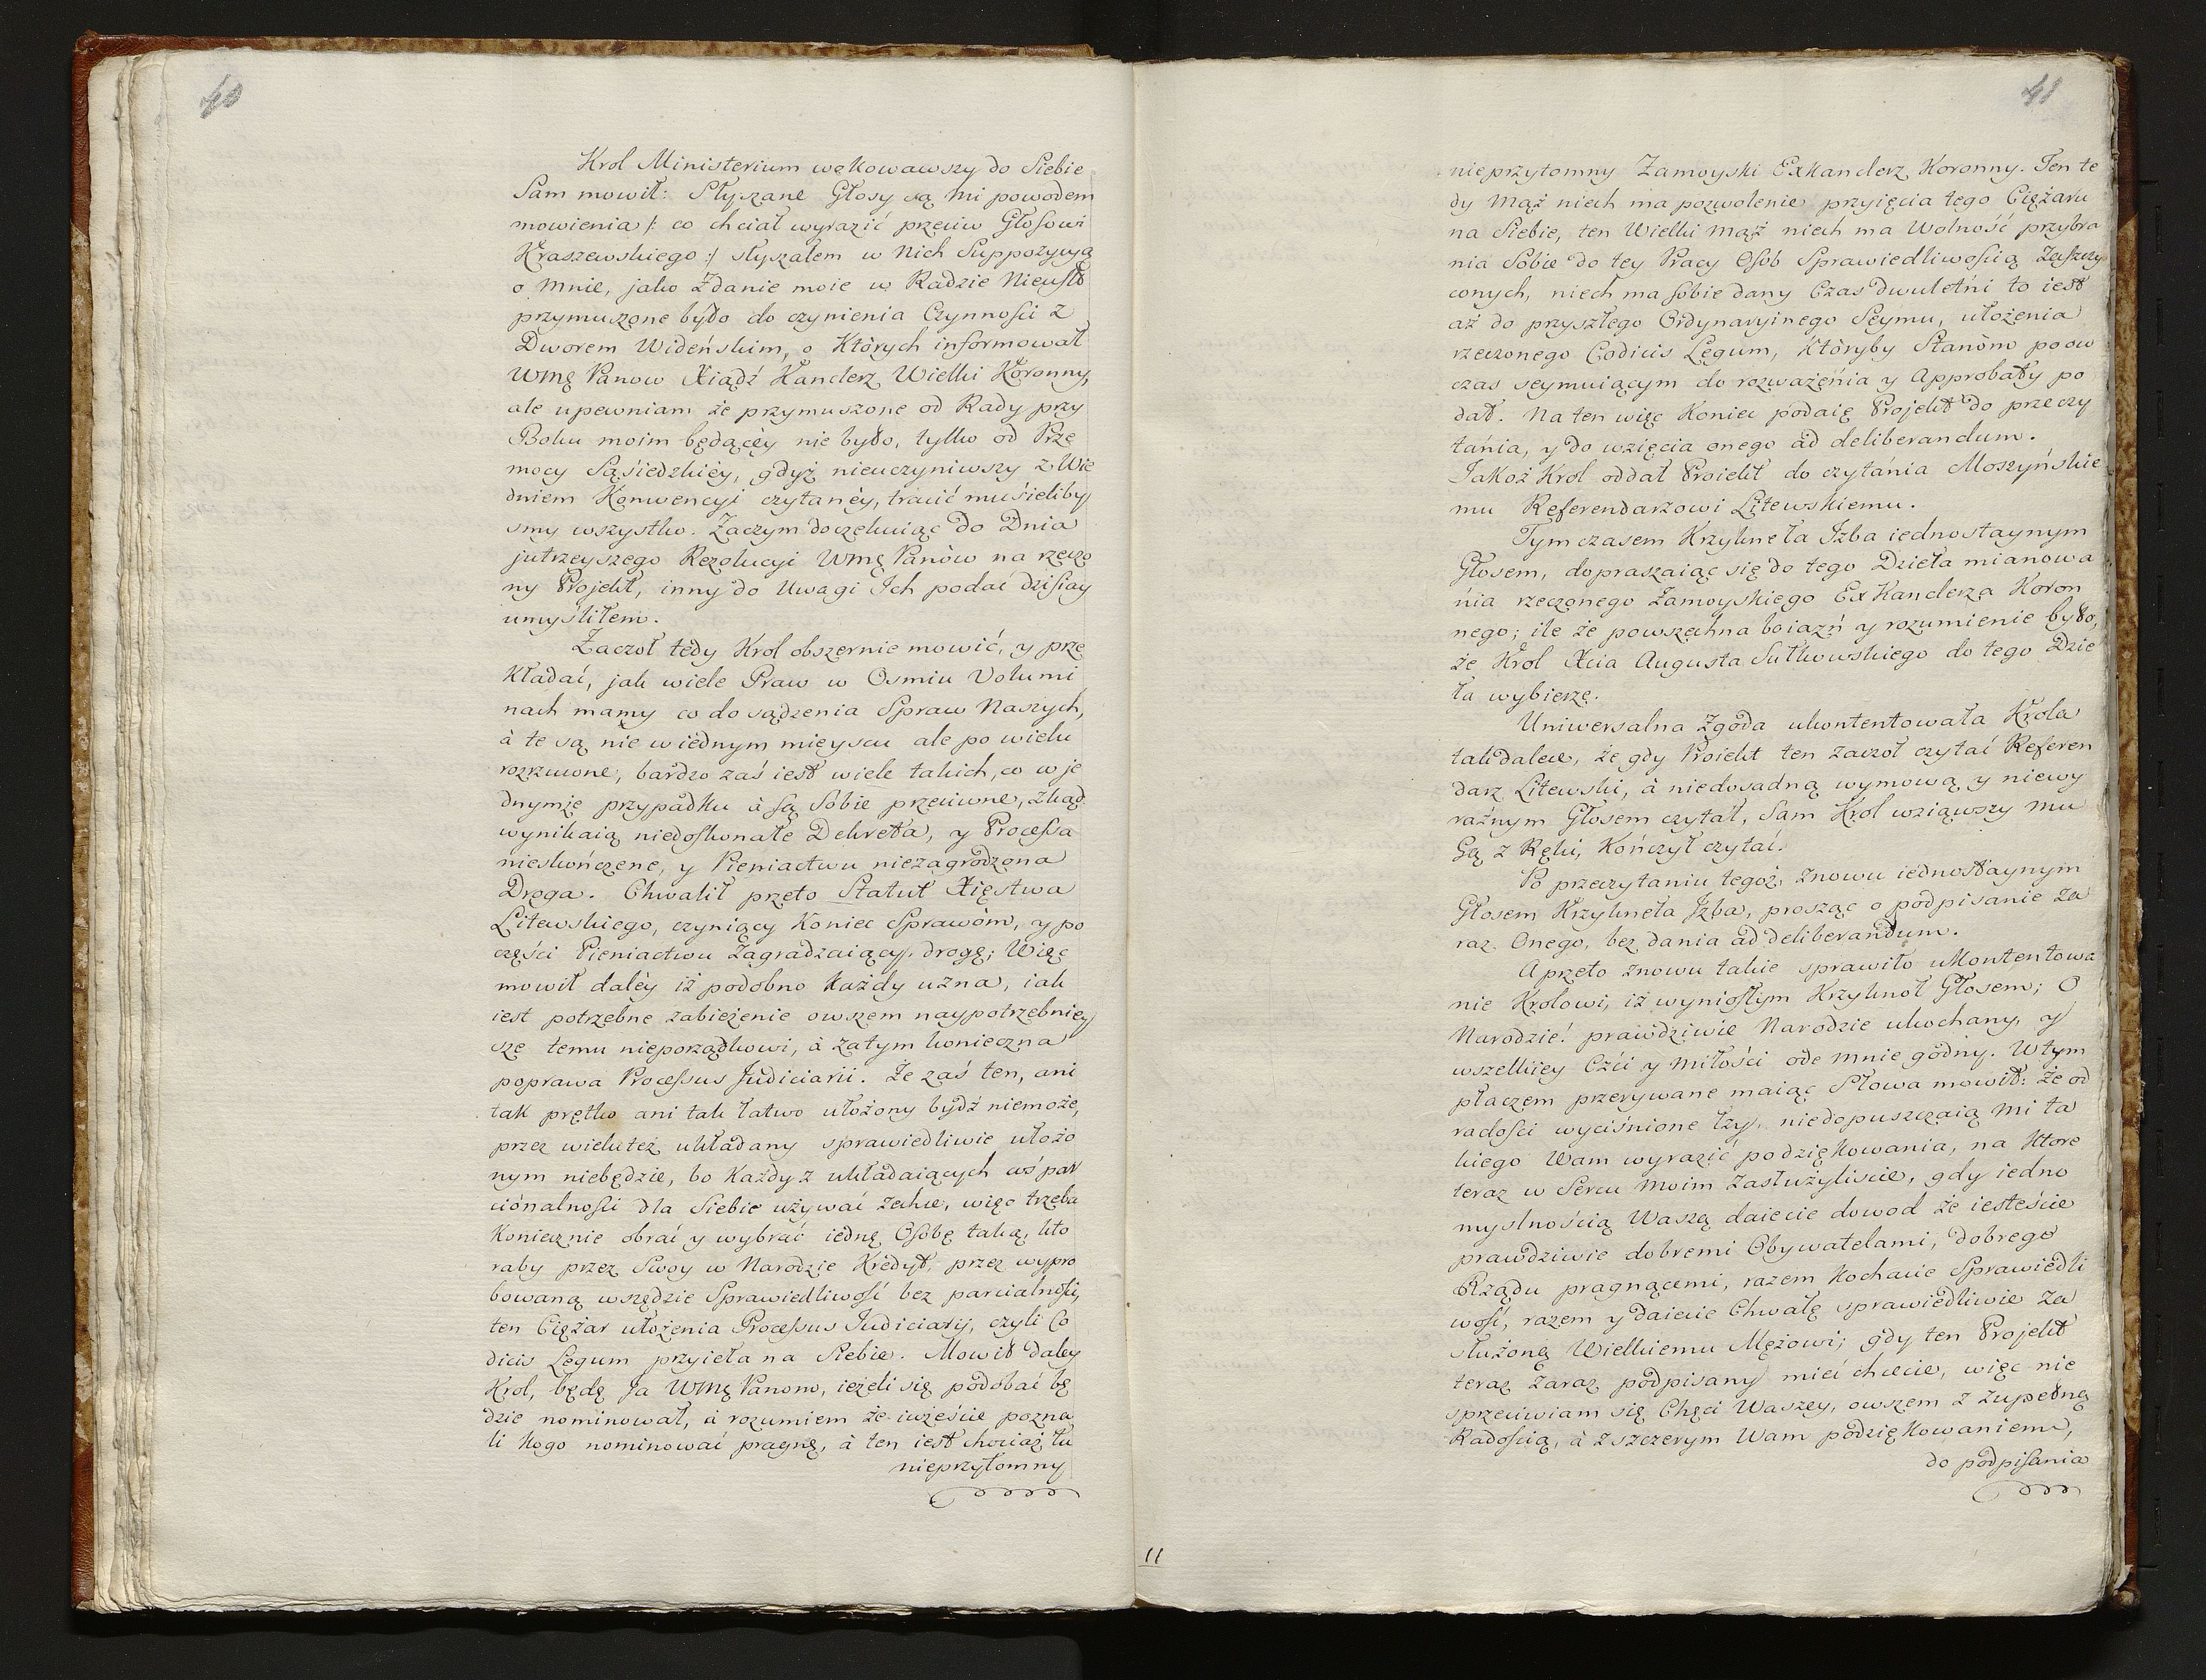 40
Krol Ministerium wokowawszy do Siebie
Sam mowił: Słyszane Głosy są mi powodem
mowienia /: co chciał wyrazić przeciw Głosowi
Kraszewskiego :/ słyszałem w Nich Suppozycyą
o mnie, jako Zdanie moie w Radzie Nieust
przymuszone było do czynienia Czynności z
Dworem Wideńskim, o Których informował
WMę Panow Xiądź Kanclerz Wielki Koronny,
ale upewniam że przymuszone od Rady przy
Boku moim będącéy nie było, tylko od Prze
mocy Sąsiedzkiéy, gdyż nieuczyniwszy z Wie
dniem Konwencyi czytanéy, tracić musieliby
smy wszystko. Zaczym doczekuiąc do Dnia
jutrzeyszego Rezolucyi WMę Panòw na rzeczo
ny Projekt, inny do Uwagi Ich podać dzisiay
umyśliłem.
Zaczoł tedy Krol obszernie mowić, y prze
Kładać, jak wiele Praw w Osmiu Volumi
nach mamy co do sądzenia Spraw Naszych,
à te są nie w iednym mieyscu ale po wielu
rozrzucone, bardzo zaś iest wiele takich, co w je
dnymże przypadku à są Sobie przeciwne, Zkąd
wynikaią niedoskonałe Dekreta, y Processa
nieskończone, y Pieniactwu niezagrodzona
Droga. Chwalił przeto Statut Xięstwa
Litewskiego, czyniący Koniec Sprawòm, y po
części Pieniactwu Zagradzaiący drogę; Więc
mowił daléy iż podobno Każdy uzna, iak
iest potrzebne zabieżenie owszem naypotrzebniey
sze temu nieporządkowi, à zatym konieczna
poprawa Processus Judiciarii. Że zaś ten, ani
tak prętko ani tak łatwo ułożony bydź niemoże,
przez wielu też układany sprawiedliwie ułożo
nym niebędzie, bo Każdy z układaiących cóś par
cionalności dla Siebie używać zechce, więc trzeba
Koniecznie obrać y wybrać iednę Osobę taką, kto
raby przez Swoy w Narodzie Kredyt, przez wypro
bowaną wszędzie Sprawiedliwość bez parcialności,
ten Ciężar ułożenia Processus Judiciarij, czyli Co
dicis Legum przyieła na Siebie. Mowił daley
Krol, będę Ja WMę Panom, ieżeli się podobać bę
dzie nominował, à rozumiem że iużeście pozna
li Kogo nominować pragnę, à ten iest chociaż tu
nieprzytomny
41
nieprzytomny Zamoyski ExKanclerz Koronny. Ten te
dy Mąż niech ma pozwolenie przyięcia tego Ciężaru
na Siebie, ten Wielki Mąż niech ma Wolność przybra
nia Sobie do tey Pracy Osòb Sprawiedliwością Zaszczy
conych, niech ma sobie dany Czas dwuletni to iest
aż do przyszłego Ordynaryinego Seymu, ułożenia
rzeczonego Codicis Legum, Któryby Stanòm poow
czas seymuiącym do rozważenia y Approbaty po
dał. Na ten więc Koniec podaię Projekt do przeczy
tania, y do wzięcia onego ad deliberandum.
Jakoż Krol oddał Proiekt do czytania Moszyńskie
mu Referendarzowi Litewskiemu.
Tymczasem Krzykneła Jzba iednostaynym
Głosem, dopraszaiąc się do tego Dzieła mianowa
nia rzeczonego Zamoyskiego ExKanclerza Koron
nego; ile że powszechna boiazń y rozumienie było,
że Krol Xcia Augusta Sułkowskiego do tego Dzie
ła wybierze.
Uniwersalna Zgoda ukontentowała Krola
takdalece, że gdy Proiekt ten zaczoł czytać Referen
darz Litewski, à niedosadną wymową y niewy
raźnym Głosem czytał, Sam Krol wziąwszy mu
Gą z Ręki, Kończył czytać.
Po przeczytaniu tegoż, znowu iednostaynym
Głosem Krzykneła Jzba, prosząc o podpisanie za
raz Onego, bez dania ad deliberandum.
A przeto znowu takie sprawiło uKontentowa
nie Krolowi, iż wyniosłym Krzyknoł Głosem; O
Narodzie! prawdziwie Narodzie ukochany, y
wszelkiey Czći y miłości ode mnie godny. Wtym
płaczem przerywane maiąc Słowa mowił: Że od
radości wyciśnione łzy, niedopuszczaią mi ta
kiego Wam wyrazić podziękowania, na Ktore
teraz w Sercu moim Zasłużyliscie, gdy iedno
myslnością Waszą daiecie dowod że iesteście
prawdziwie dobremi Obywatelami, dobrego
Rządu pragnącemi, razem Kochacie Sprawiedli
wość, razem y daiecie Chwałę sprawiedliwie Za
służoną Wielkiemu Mężowi; gdy ten Projekt
teraz zaraz podpisany mieć chcecie, więc nie
sprzeciwiam się Chęci Waszey, owszem z zupełną
Radością, à z szczerym Wam podziękowaniem,
do podpisania
11